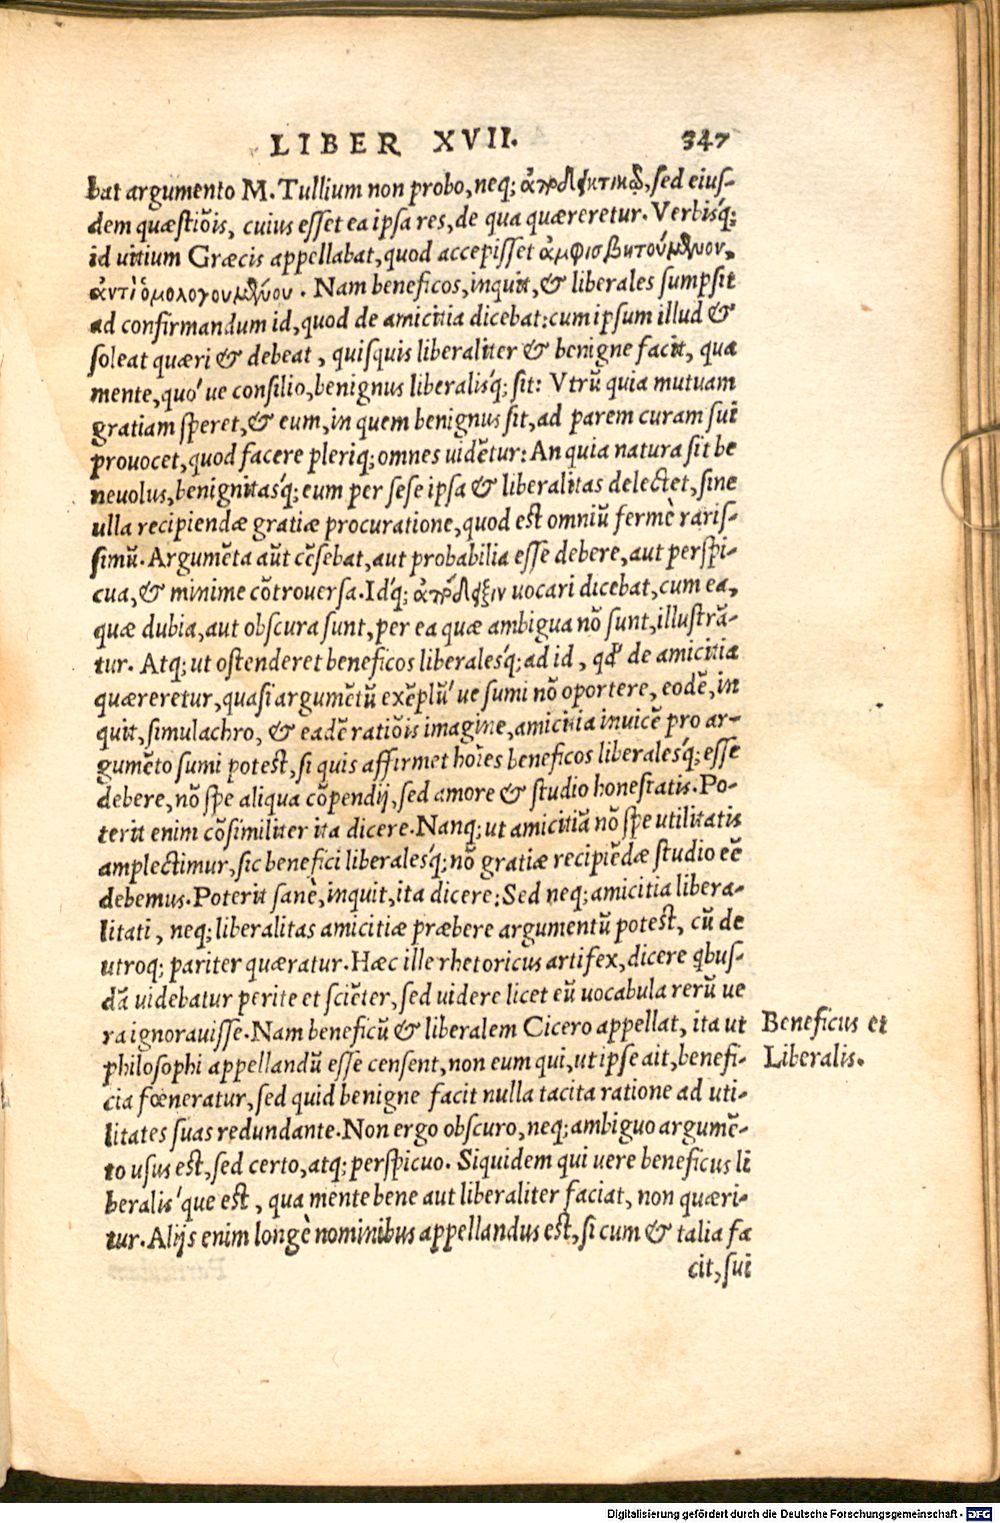 LIBER XVII. 347
bat argumento M. Tullium non probo, neq; ἀποδεικτικῷ, sed eius-
dem quæstiõis, cuius esset ea ipsa res, de qua quæreretur. Verbisq́;
id uitium Græcis appellabat, quod accepisset ἀμφισβητούμενον,
ἀντὶ ὁμολογουμένου. Nam beneficos, inquit, & liberales sumpsit
ad confirmandum id, quod de amicitia dicebat: cum ipsum illud &
soleat quæri & debeat, quisquis liberaliter & benigne facit, qua
mente, quo´ ue consilio, benignus liberalisq́; sit: Vtrũ quia mutuam
gratiam speret, & eum, in quem benignus sit, ad parem curam sui
prouocet, quod facere pleriq; omnes uidẽtur: An quia natura sit be
neuolus, benignitasq́; eum per sese ipsa & liberalitas delectet, sine
ulla recipiendæ gratiæ procuratione, quod est omniũ fermè raris-
simũ. Argumẽta aũt cẽsebat, aut probabilia esse debere, aut perspi-
cua, & minime cõtrouersa. Idq́; ἀπόδειξιν uocari dicebat, cum ea,
quæ dubia, aut obscura sunt, per ea quæ ambigua nõ sunt, illustrã-
tur. Atq; ut ostenderet beneficos liberalesq́; ad id, qd' de amicitia
quæreretur, quasi argumẽtũ exẽplũ´ ue sumi nõ oportere, eodẽ, in
quit, simulachro, & eadẽ ratiõis imagine, amicitia inuicẽ pro ar-
gumẽto sumi potest, si quis affirmet hoĩes beneficos liberalesq́; esse
debere, nõ spe aliqua cõpendij, sed amore & studio honestatis. Po-
terit enim cõsimiliter ita dicere. Nanq; ut amicitiã nõ spe utilitatis
amplectimur, sic benefici liberalesq́; nõ gratiæ recipiẽdæ studio eẽ
debemus. Poterit sanè, inquit, ita dicere: Sed neq; amicitia libera-
litati, neq; liberalitas amicitiæ præbere argumentũ potest, cũ de
utroq; pariter quæratur. Hæc ille rhetoricus artifex, dicere qbus-
dã uidebatur perite et sciẽter, sed uidere licet eũ uocabula rerũ ue
ra ignorauisse. Nam beneficũ & liberalem Cicero appellat, ita ut
philosophi appellandũ esse censent, non eum qui, ut ipse ait, benefi-
cia fœneratur, sed quid benigne facit nulla tacita ratione ad uti-
litates suas redundante. Non ergo obscuro, neq; ambiguo argumẽ-
to usus est, sed certo, atq; perspicuo. Siquidem qui uere beneficus li
beralis´ que est, qua mente bene aut liberaliter faciat, non quæri-
tur. Alijs enim longè nominibus appellandus est, si cum & talia fa
cit, sui
Beneficus et
Liberalis.
Digitalisierung gefördert durch die Deutsche Forschungsgemeinschaft - DFG